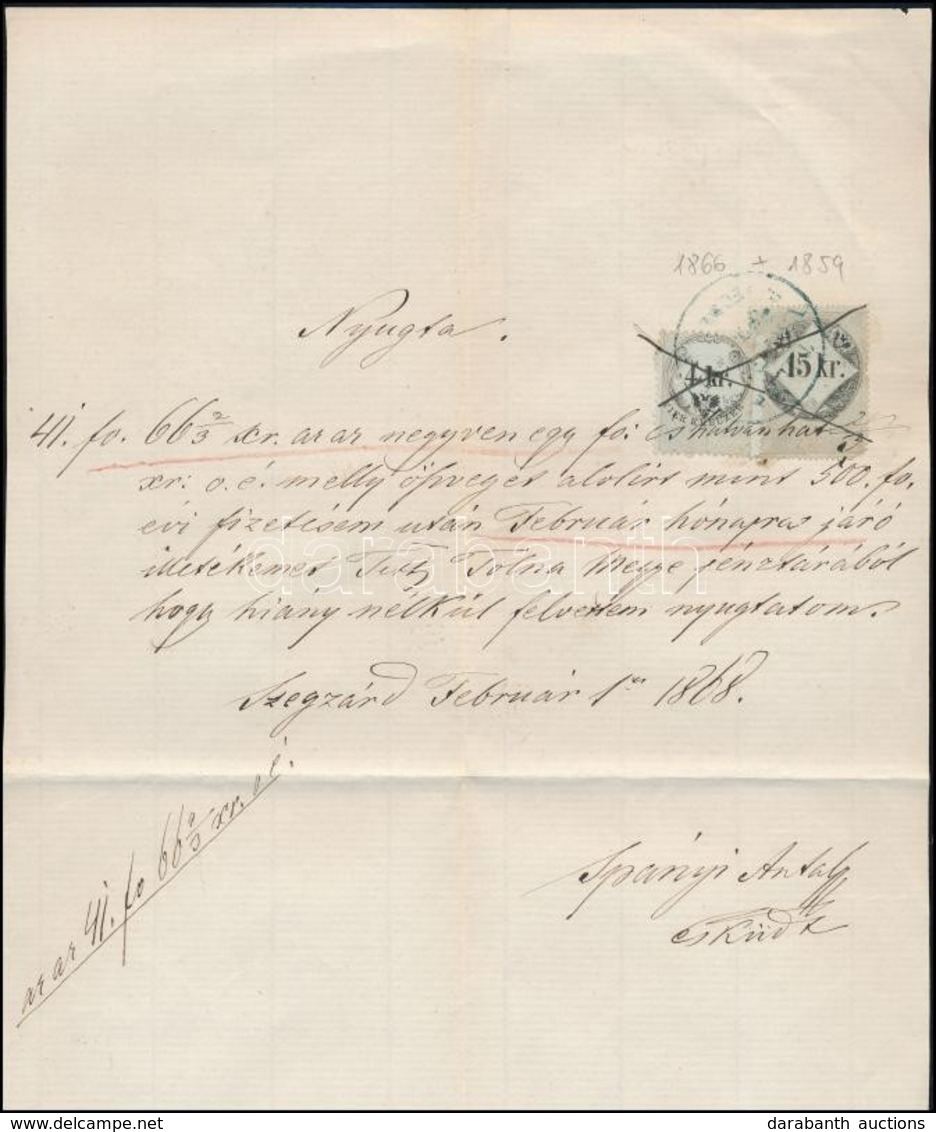 1866 + 1859
Nyugta.
4 kr. 15 kr.
41. fo. 66 2/3 xr. az az negyven egy fo: és hatvan hat 2/3
xr: o. é. melly öszveget alolirt mint 500. fo.
évi fizetésem után Február hónapra járó
illetékemet Ttts Tolna Megye pénztárából
hogy hiány nélkül felvettem nyugtatom.
Szegzárd Február 1ről 1868.
az az 41. fo 66 2/3 xr. o é.
Spányi Antal
esküdt
darabanth
darabanth auctions